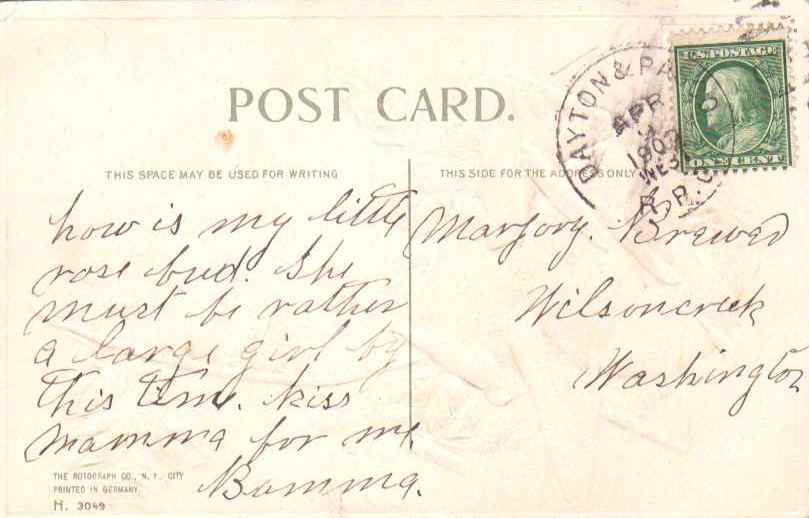 POST CARD.
THIS SPACE MAY BE USED FOR WRITING
how is my little
rose bud. She
must be rather
a large girl by
this time. kiss
mamma for me
Bamma.
THE ROTOGRAPH CO., N. Y. CITY
PRINTED IN GERMANY
H. 3049
THIS SIDE FOR THE ADDRESS ONLY
Marjory. Brewer
Wilsoncreek
Washington
U.S. POSTAGE
ONE CENT
DAYTON &
APR
WEST
R.P.O